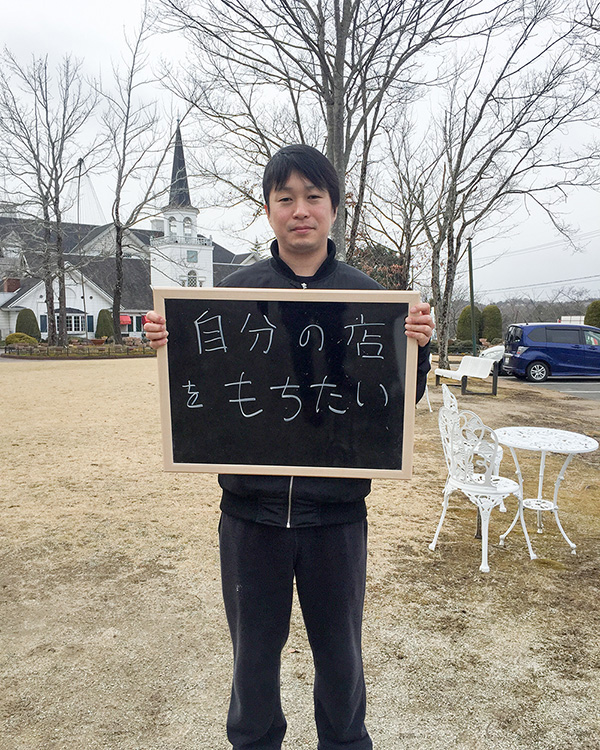 自分の店
をもちたい